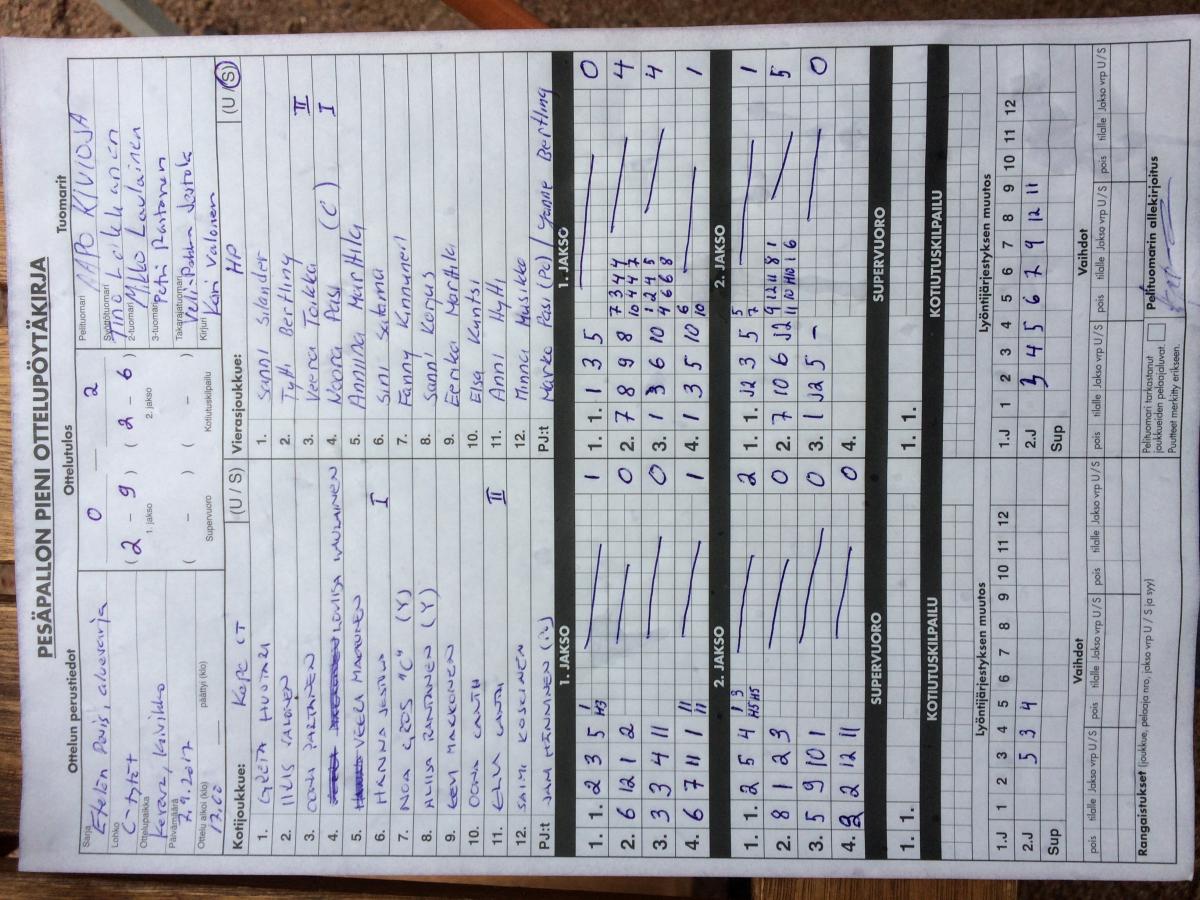 PESÄPALLON PIENI OTTELUPÖYTÄKIRJA
Ottelun perustiedot
Ottelutulos
Tuomarit
Sarja
Etelän Povis, aluesarja
Lohko
C-tytöt
Ottelupaikka
Kerava, Kaivokko
Päivämäärä
2.9.2017
Ottelu alkoi (klo)
17.00
päättyi (klo)
0 2
(2 - 9) (2 - 6)
1. jakso 2. jakso
( - ) ( - )
Supervuoro Kotiutuskilpailu
Pelituomari
AAPO KIVIOJA
Syöttötuomari
Timo Laakkanen
2-tuomari
Mikko Laulainen
3-tuomari
Petri Rantanen
Takarajatuomari
Veli-Pekka Jestola
Kirjuri
Kari Valonen
Kotijoukkue: KaPe CT (U / S)
1. GRETA HUOTARI
2. IIRIS SALONEN
3. OONA PARTANEN
4. LOVIISA
5. VEERA
6. HANNA I
7. NOA "C" (Y)
8. ALIISA RANTANEN (Y)
9. MAKKONEN
10. OONA
11. II
12. SAIMI KOSKINEN
PJ:t JANI HÄNNINEN
Vierasjoukkue: HP (U / S)
1. Sanni Silander
2. Tytti Bertling
3. Veera Tolkka II
4. Noora Pasi (C) I
5. Anniina Marttila
6. Sini Salama
7. Fanny Kinnunen
8. Sanni Korpus
9. Eerika Marttila
10. Elsa Kuntsi
11. Anni Hytti
12. Minna Musikka
PJ:t Marko Pasi (PJ) / Janne Bertling
1. JAKSO
1. 1. 2 3 5 1 H3 1
2. 6 12 1 2 0
3. 3 3 4 11 0
4. 6 7 11 1 11 11 1
2. JAKSO
1. 1. 2 5 4 1 3 H5 H5 2
2. 8 1 2 3 0
3. 5 9 10 1 0
4. 2 2 12 11 0
1. JAKSO
1. 1. 1 3 5 0
2. 7 8 9 8 7 3 4 4 10 4 4 7 4
3. 1 3 6 10 1 2 4 5 4 6 6 8 4
4. 1 3 5 10 6 10 1
2. JAKSO
1. 1. J2 3 5 5 7 1
2. 7 10 6 J2 9 12 11 8 1 11 10 H10 1 6 5
3. 1 J2 5 - 0
4.
SUPERVUORO
1. 1.
SUPERVUORO
1. 1.
KOTIUTUSKILPAILU
KOTIUTUSKILPAILU
Lyöntijärjestyksen muutos
1.J 1 2 3 4 5 6 7 8 9 10 11 12
2.J 5 3 4
Sup
Lyöntijärjestyksen muutos
1.J 1 2 3 4 5 6 7 8 9 10 11 12
2.J 3 4 5 6 7 9 12 11
Sup
Vaihdot
pois tilalle Jakso vrp U / S pois tilalle Jakso vrp U / S pois tilalle Jakso vrp U / S
Vaihdot
pois tilalle Jakso vrp U / S pois tilalle Jakso vrp U / S pois tilalle Jakso vrp U / S
Rangaistukset (joukkue, pelaaja nro, jakso vrp U / S ja syy)
Pelituomari tarkastanut
joukkueiden pelaajaluvat.
Puutteet merkitty erikseen.
Pelituomarin allekirjoitus